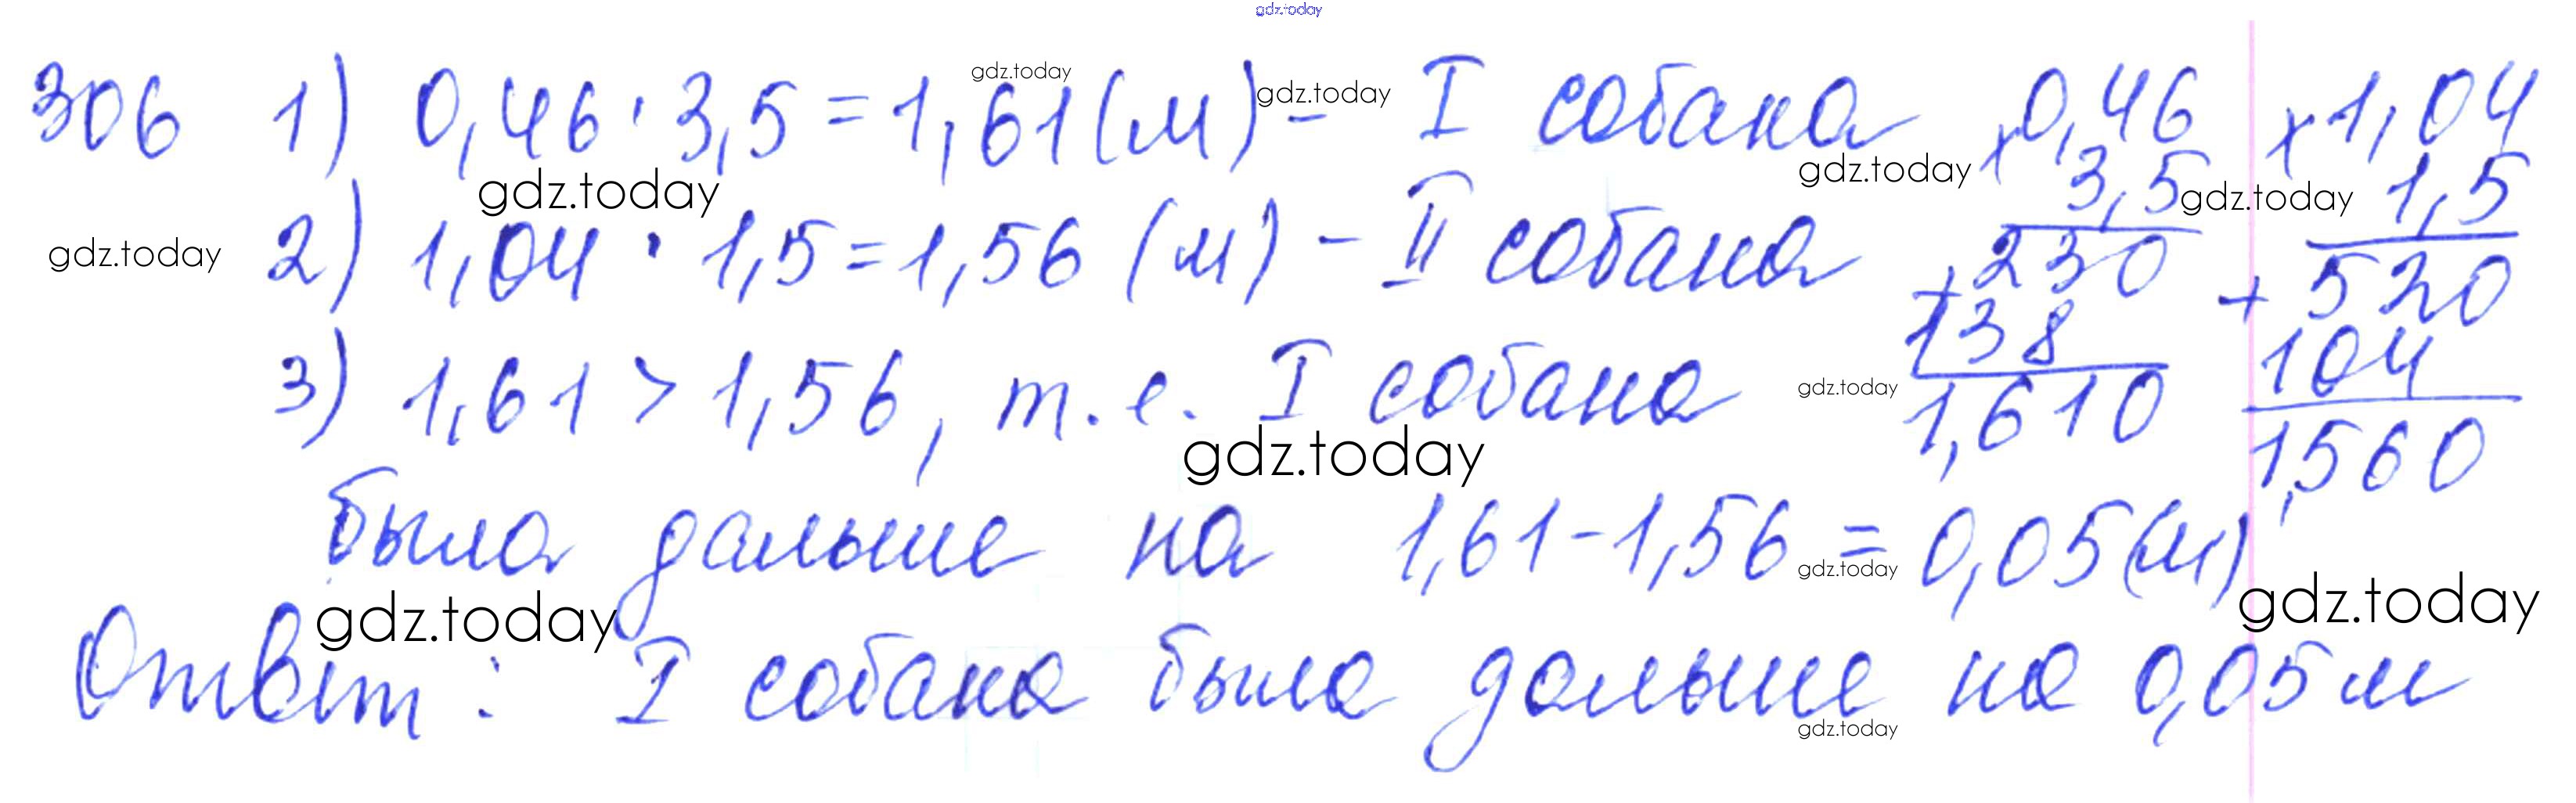 gdz.today
306 1) 0,46 · 3,5 = 1,61 (м) - I собака
gdz.today
gdz.today
2) 1,04 · 1,5 = 1,56 (м) - II собака
3) 1,61 > 1,56, т.е. I собака
была дальше на 1,61 - 1,56 = 0,05 (м)
Ответ: I собака была дальше на 0,05 м
× 0,46
3,5
+ 230
138
1,610
× 1,04
1,5
+ 520
104
1,560
gdz.today
gdz.today
gdz.today
gdz.today
gdz.today
gdz.today
gdz.today
gdz.today
gdz.today
gdz.today